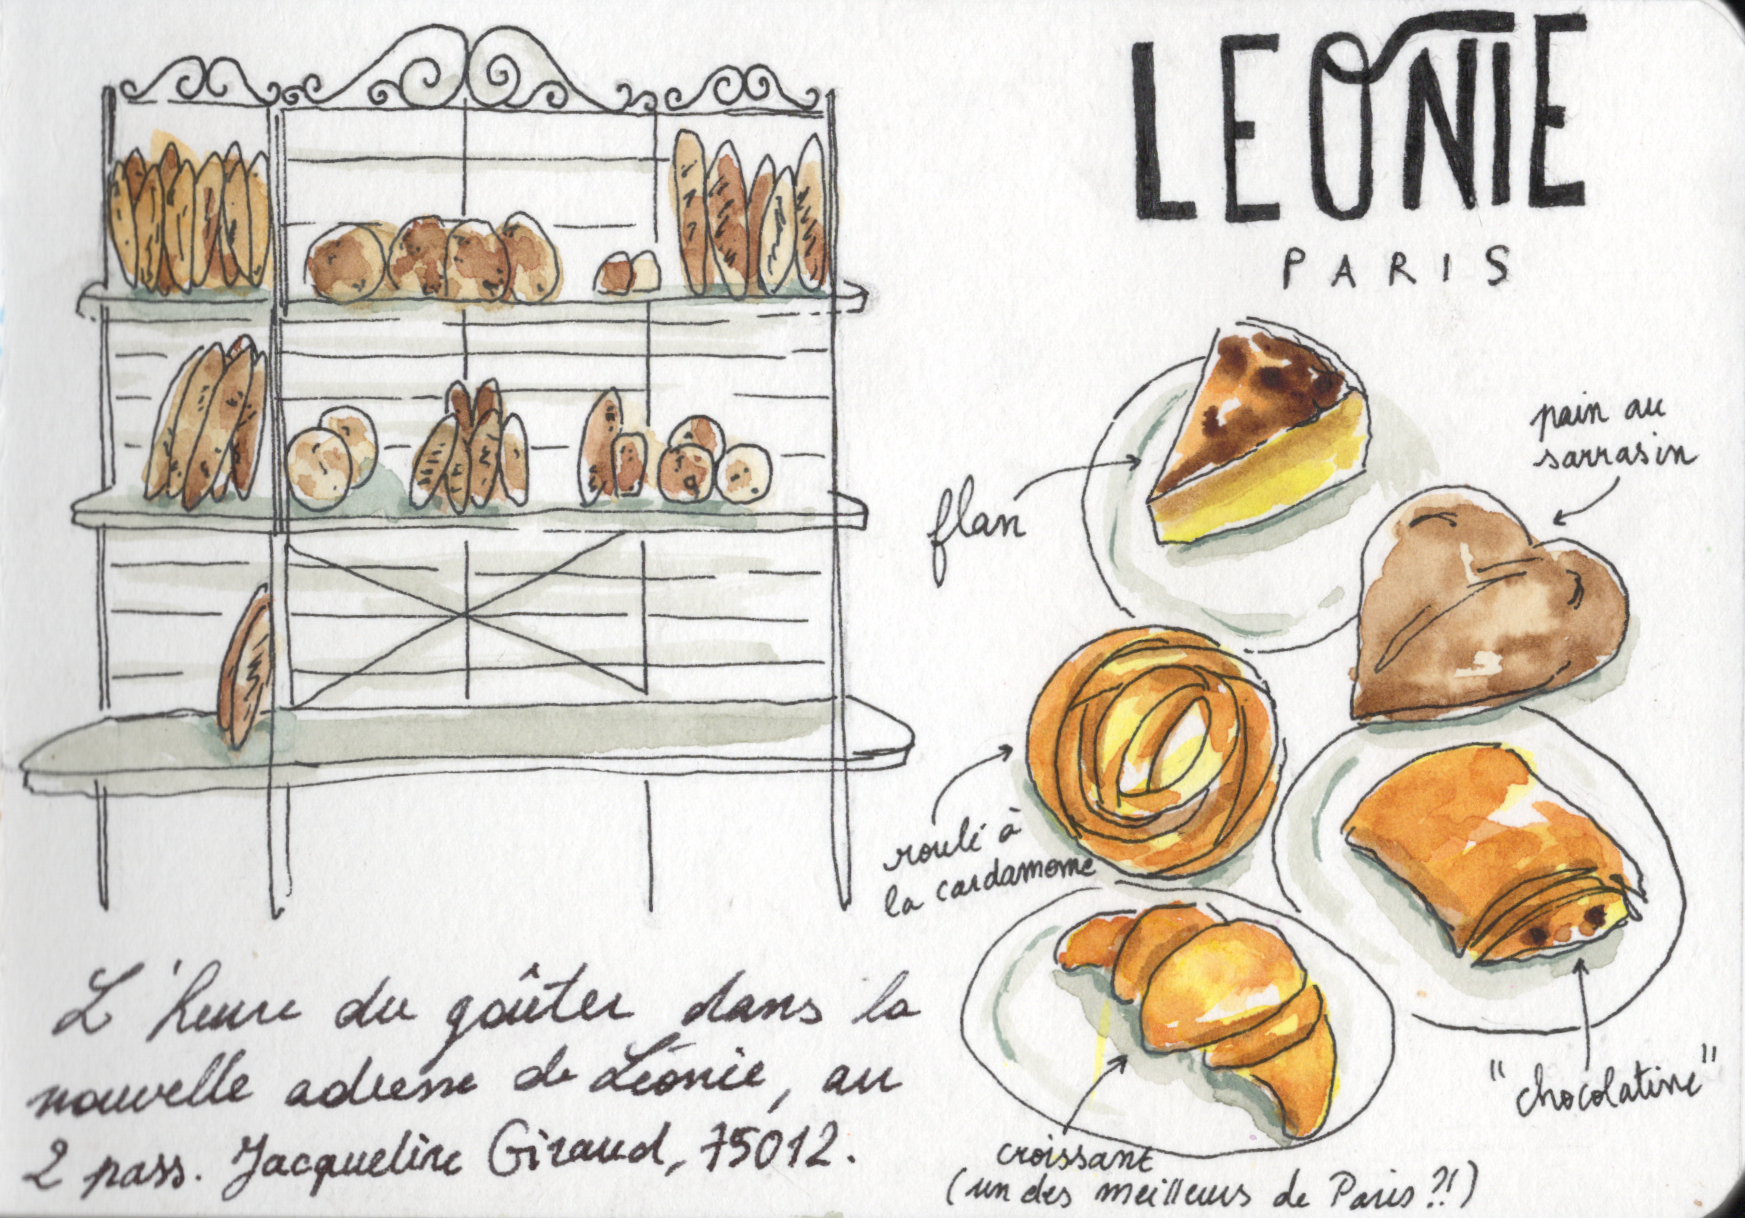 LEONIE
PARIS
flan
pain au
sarrasin
roulé à
la cardamome
"chocolatine"
croissant
(un des meilleurs de Paris ?!)
L'heure du goûter dans la
nouvelle adresse de Léonie, au
2 pass. Jacqueline Giraud, 75012.